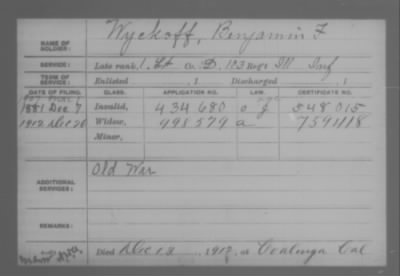 NAME OF SOLDIER: Wyckoff, Benjamin F
SERVICE: Late rank, 1. Lt Co. D, 103 Reg't Ill Inf
TERM OF SERVICE: Enlisted , 1 Discharged , 1
DATE OF FILING. CLASS. APPLICATION NO. LAW. CERTIFICATE NO.
1881 Dec 7 Invalid, 434680 o g 548015
Dec 26 Widow, 998579 a 759118
Minor,
ADDITIONAL SERVICES: Old War
REMARKS:
Died Dec 12 191 , at Coalinga Cal